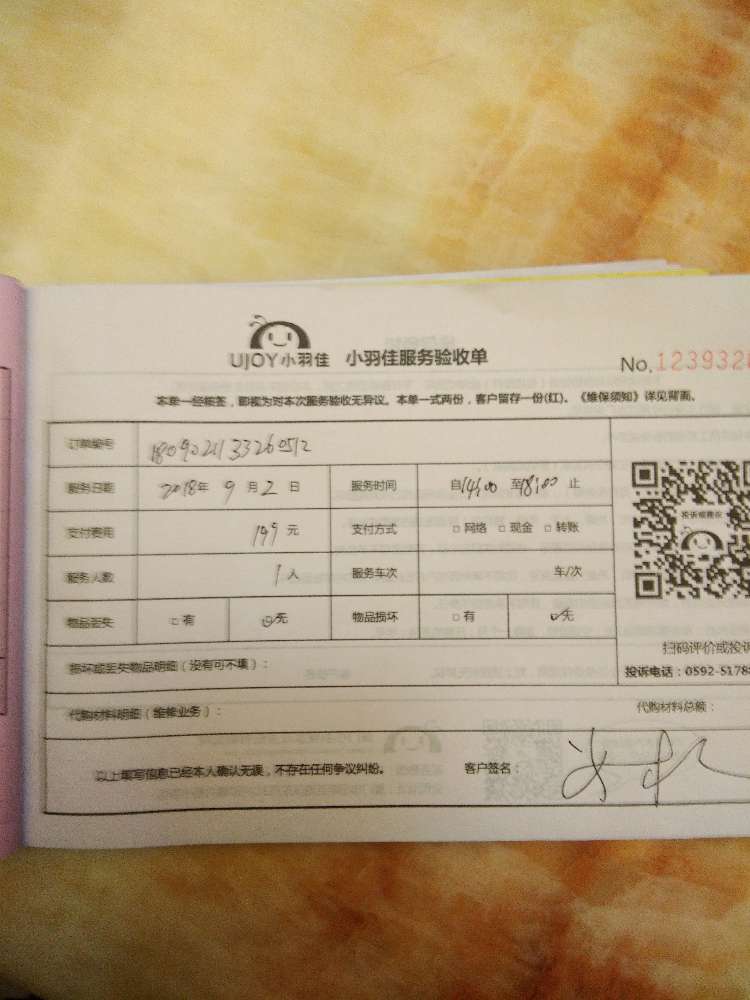 UJOY小羽佳 小羽佳服务验收单
No.1239320
本单一经核签，即视为对本次服务验收无异议。本单一式两份，客户留存一份(红)。《维保须知》详见背面。
订单编号
服务日期 2018年 9月 2日 服务时间 自14:00 至18:00 止
投诉或建议
支付费用 149 元 支付方式 □ 网络 □ 现金 □ 转账
服务人数 1人 服务车次 车/次
物品丢失 □ 有 ☑无 物品损坏 □ 有 ☑无
扫码评价或投诉
投诉电话：0592-5178
损坏或丢失物品明细（没有可不填）：
代购材料明细（维修业务）： 代购材料总额：
以上填写信息已经本人确认无误，不存在任何争议纠纷。 客户签名：